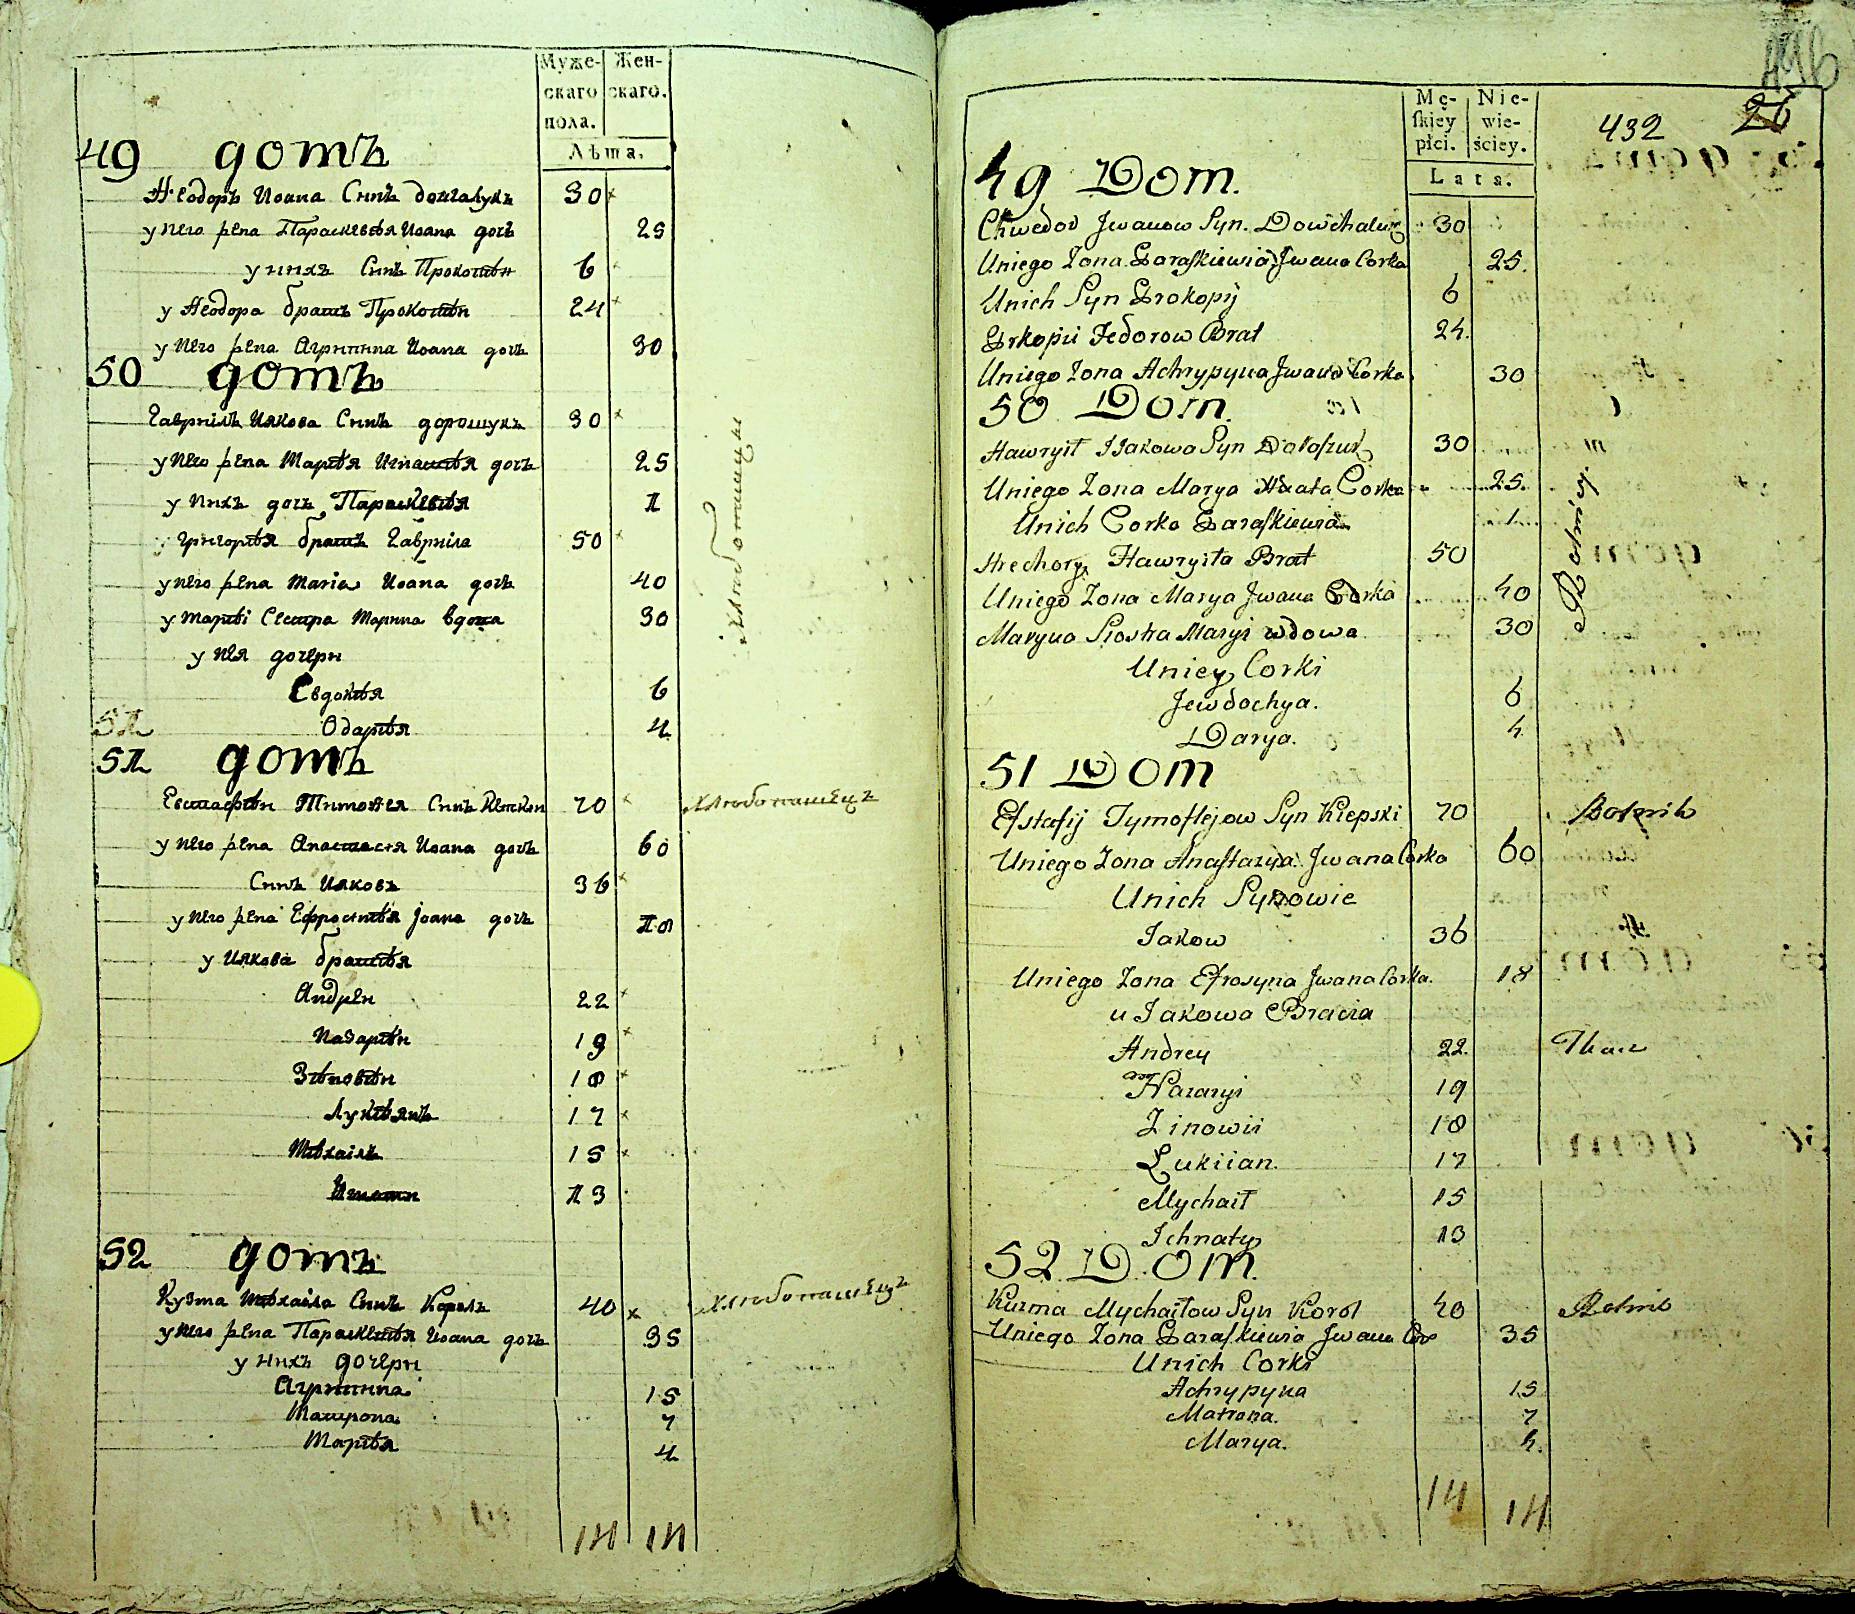 Муже-
скаго
пола.
Жен-
скаго.
Лѣта.
49 домъ
Ѳеодоръ Иоана Синъ довгалукъ 30
у него жена Параскевія Иоана дочъ 25
у нихъ Синъ Прокопій 6
у Ѳеодора братъ Прокопій 24
у него жена Агрипина Иоана дочъ 30
50 домъ
Гавриілъ Иякова Синъ дорошукъ 30
у него жена Марія Игнатія дочъ 25
у нихъ дочъ Параскевія 1
Григорія братъ Гавріила 50
у него жена Maria Иоана дочъ 40
у Маріі Сестра Марина вдова 30
у нея дочери
Евдокія 6
Одарія 4
хлѣбопашцы
51
51 домъ
Евстафій Тимоѳея Синъ Кепскій 70 хлѣбопашецъ
у него жена Анастасія Иоана дочъ 60
Синъ Ияковъ 36
у него жена Ефросинія Јоана дочъ 18
у Иякова братія
Андрей 22
Назарій 19
Зѣновій 18
Лукіянъ 17
Міхаілъ 15
Игнатій 13
52 домъ
Кузма Міхаіла Синъ Король 40 хлѣбопашецъ
у него жена Параскевія Иоана дочъ 35
у нихъ дочери
Агрипина 15
Матрона 7
Марія 4
14 14
Mę-
skiey
płci.
Nie-
wie-
ściey.
Lata.
432 26
49 Dom.
Chwedor Jwanow Syn. Dowhaluk 30
Uniego Zona Paraskiewia Jwana Corka 25.
Unich Syn Prokopij 6
Prkopii Fedorow Brat 24.
Uniego Zona Achrypyna Jwana Corka 30
50 Dom.
Hawryił JJakowa Syn Doroszuk 30
Uniego Zona Marya Ihnata Corka 25.
Unich Corka Paraskiewia 1.
Hrechory Hawryiła Brat 50
Uniego Zona Marya Jwana Corka 40
Maryna Siostra Maryi wdowa 30
Uniey Corki
Jewdochya. 6
Darya. 4
Rolnicy.
51 Dom
Efstafij Tymoflejow Syn Kiepski 70 Rolnik
Uniego Zona Anastazya Jwana Corka 60
Unich Synowie
Jakow 36
Uniego Zona Efrosyna Jwana Corka. 18
u Jakowa Bracia
Andrey 22. Tkacz
Nazaryi 19
Zinowii 18
Łukiian. 17
Mychaił 15
Ichnaty 13
52 Dom.
Kuzma Mychaiłow Syn Korol 40 Rolnik
Uniego Zona Paraskiewia Jwana Cor 35
Unich Corki
Achrypyna 15
Matrona. 7
Marya. 4.
14 14